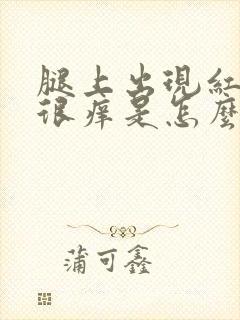 腿上出現紅
很痒是怎麼
蒲可鑫